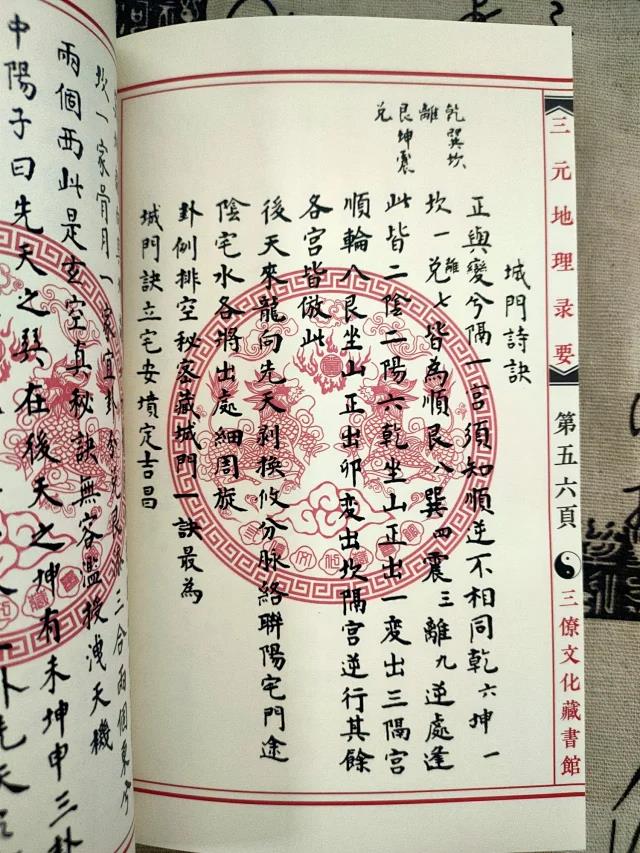 三元地理录要
第五六頁
三僚文化藏書館
乾巽坎
離
艮坤震
兌
城門詩訣
正與變兮隔一宮須知順逆不相同乾六坤一
坎一離兌七皆為順艮八巽四震三離九逆處逢
此皆二陰二陽六乾坐山正出一變出三隔宮
順輪八艮坐山正出卯變出坎隔宮逆行其餘
各宮皆倣此
後天來龍向先天剥換攸分脉絡聯陽宅門途
陰宅水各將出處細周旅
卦例排空秘密藏城門一訣最為
城門訣立宅安墳定吉昌
坎一家骨月一家宜卦分兌艮 三合兩個東
兩個西此是玄空真秘訣無容濫授洩天機
中陽子曰先天之巽在後天之坤有未坤申三卦